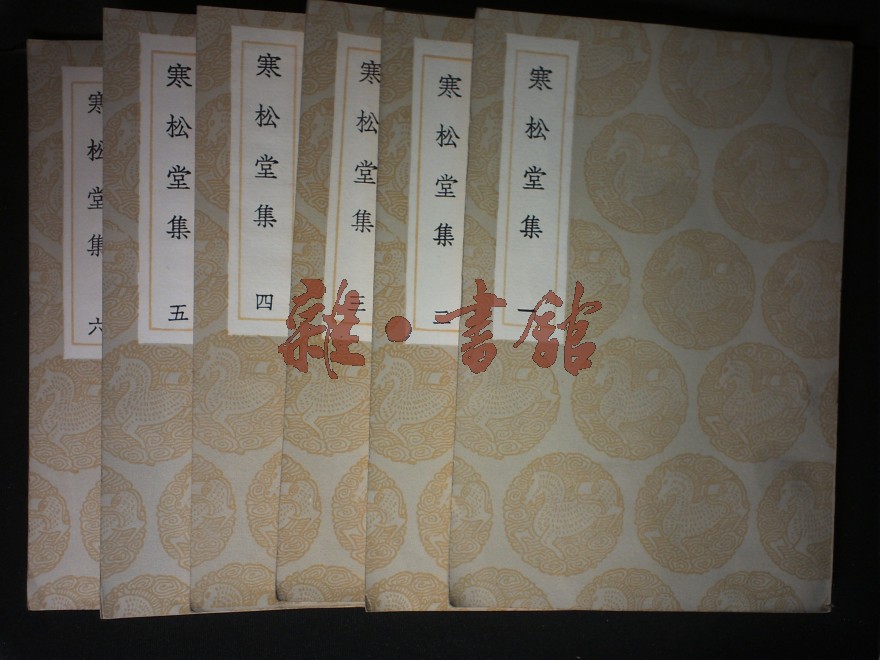 寒松堂集 一
寒松堂集 二
寒松堂集 三
寒松堂集 四
寒松堂集 五
寒松堂集 六
雜·書館